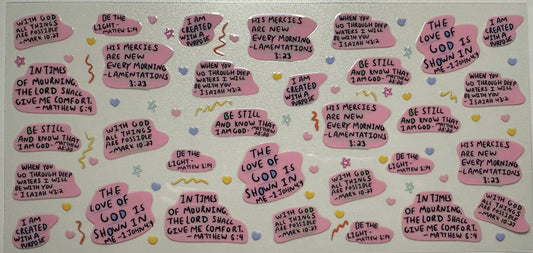 WITH GOD
ALL THINGS
ARE POSSIBLE
-MARK 10:27
BE THE
LIGHT- MATTHEW 5:14
I AM
CREATED
WITH A
PURPOSE
HIS MERCIES
ARE NEW
EVERY MORNING
-LAMENTATIONS
3:23
WHEN YOU
GO THROUGH DEEP
WATERS I WILL
BE WITH YOU
- ISAIAH 43:2
THE
LOVE OF
GOD IS
SHOWN IN
ME -1 JOHN 4:9
HIS MERCIES
ARE NEW
EVERY MORNING
-LAMENTATIONS
3:23
IN TIMES
OF MOURNING,
THE LORD SHALL
GIVE ME COMFORT.
- MATTHEW 5:4
WHEN YOU
GO THROUGH DEEP
WATERS I WILL
BE WITH YOU
- ISAIAH 43:2
I AM
CREATED
WITH A
PURPOSE
BE STILL
AND KNOW THAT
I AM GOD-
WHEN YOU
GO THROUGH DEEP
WATERS I WILL
BE WITH YOU
- ISAIAH 43:2
BE STILL
AND KNOW THAT
I AM GOD-
HIS MERCIES
ARE NEW
EVERY MORNING
-LAMENTATIONS
3:23
BE STILL
AND KNOW THAT
I AM GOD-
WITH GOD
ALL THINGS
ARE POSSIBLE
-MARK 10:27
BE STILL
AND KNOW THAT
I AM GOD-
HIS MERCIES
ARE NEW
EVERY MORNING
-LAMENTATIONS
3:23
BE THE
LIGHT- MATTHEW 5:14
BE THE
LIGHT- MATTHEW 5:14
WHEN YOU
GO THROUGH DEEP
WATERS I WILL
BE WITH YOU
- ISAIAH 43:2
THE
LOVE OF
GOD IS
SHOWN IN
ME -1 JOHN 4:9
THE
LOVE OF
GOD IS
SHOWN IN
ME -1 JOHN 4:9
WITH GOD
ALL THINGS
ARE POSSIBLE
-MARK 10:27
IN TIMES
OF MOURNING,
THE LORD SHALL
GIVE ME COMFORT.
- MATTHEW 5:4
IN TIMES
OF MOURNING,
THE LORD SHALL
GIVE ME COMFORT.
- MATTHEW 5:4
WITH GOD
ALL THINGS
ARE POSSIBLE
-MARK 10:27
WITH GOD
ALL THINGS
ARE POSSIBLE
-MARK 10:27
I AM
CREATED
WITH A
PURPOSE
BE THE
LIGHT- MATTHEW 5:14